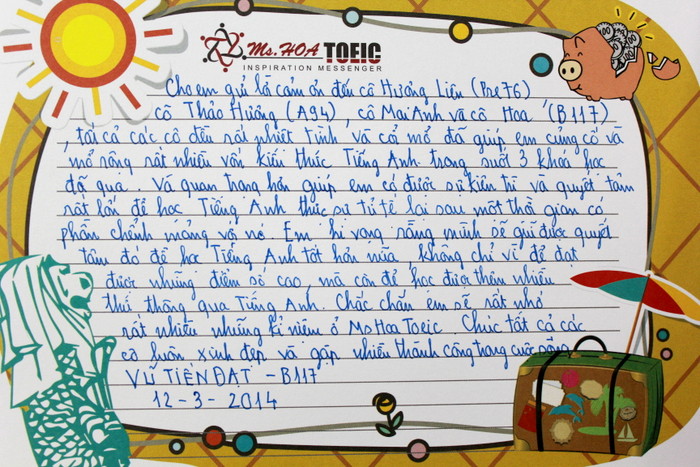 Ms. HOA TOEIC
INSPIRATION MESSENGER
Cho em gửi lời cảm ơn đến cô Hương Liên (Pre76)
cô Thảo Hương (A94), cô Mai Anh và cô Hoa (B117)
, tất cả các cô đều rất nhiệt tình và cởi mở đã giúp em củng cố và
mở rộng rất nhiều vốn kiến thức Tiếng Anh trong suốt 3 khoá học
đã qua. Và quan trọng hơn giúp em có được sự kiên trì và quyết tâm
rất lớn để học Tiếng Anh thực sự tử tế lại sau một thời gian có
phần chểnh mảng với nó. Em hi vọng rằng mình sẽ giữ được quyết
tâm đó để học Tiếng Anh tốt hơn nữa, không chỉ vì để đạt
được những điểm số cao, mà còn để học được thêm nhiều
thứ thông qua Tiếng Anh. Chắc chắn em sẽ rất nhớ
rất nhiều những kỉ niệm ở Ms Hoa Toeic. Chúc tất cả các
cô luôn xinh đẹp và gặp nhiều thành công trong cuộc sống
VŨ TIẾN ĐẠT - B117
12-3-2014